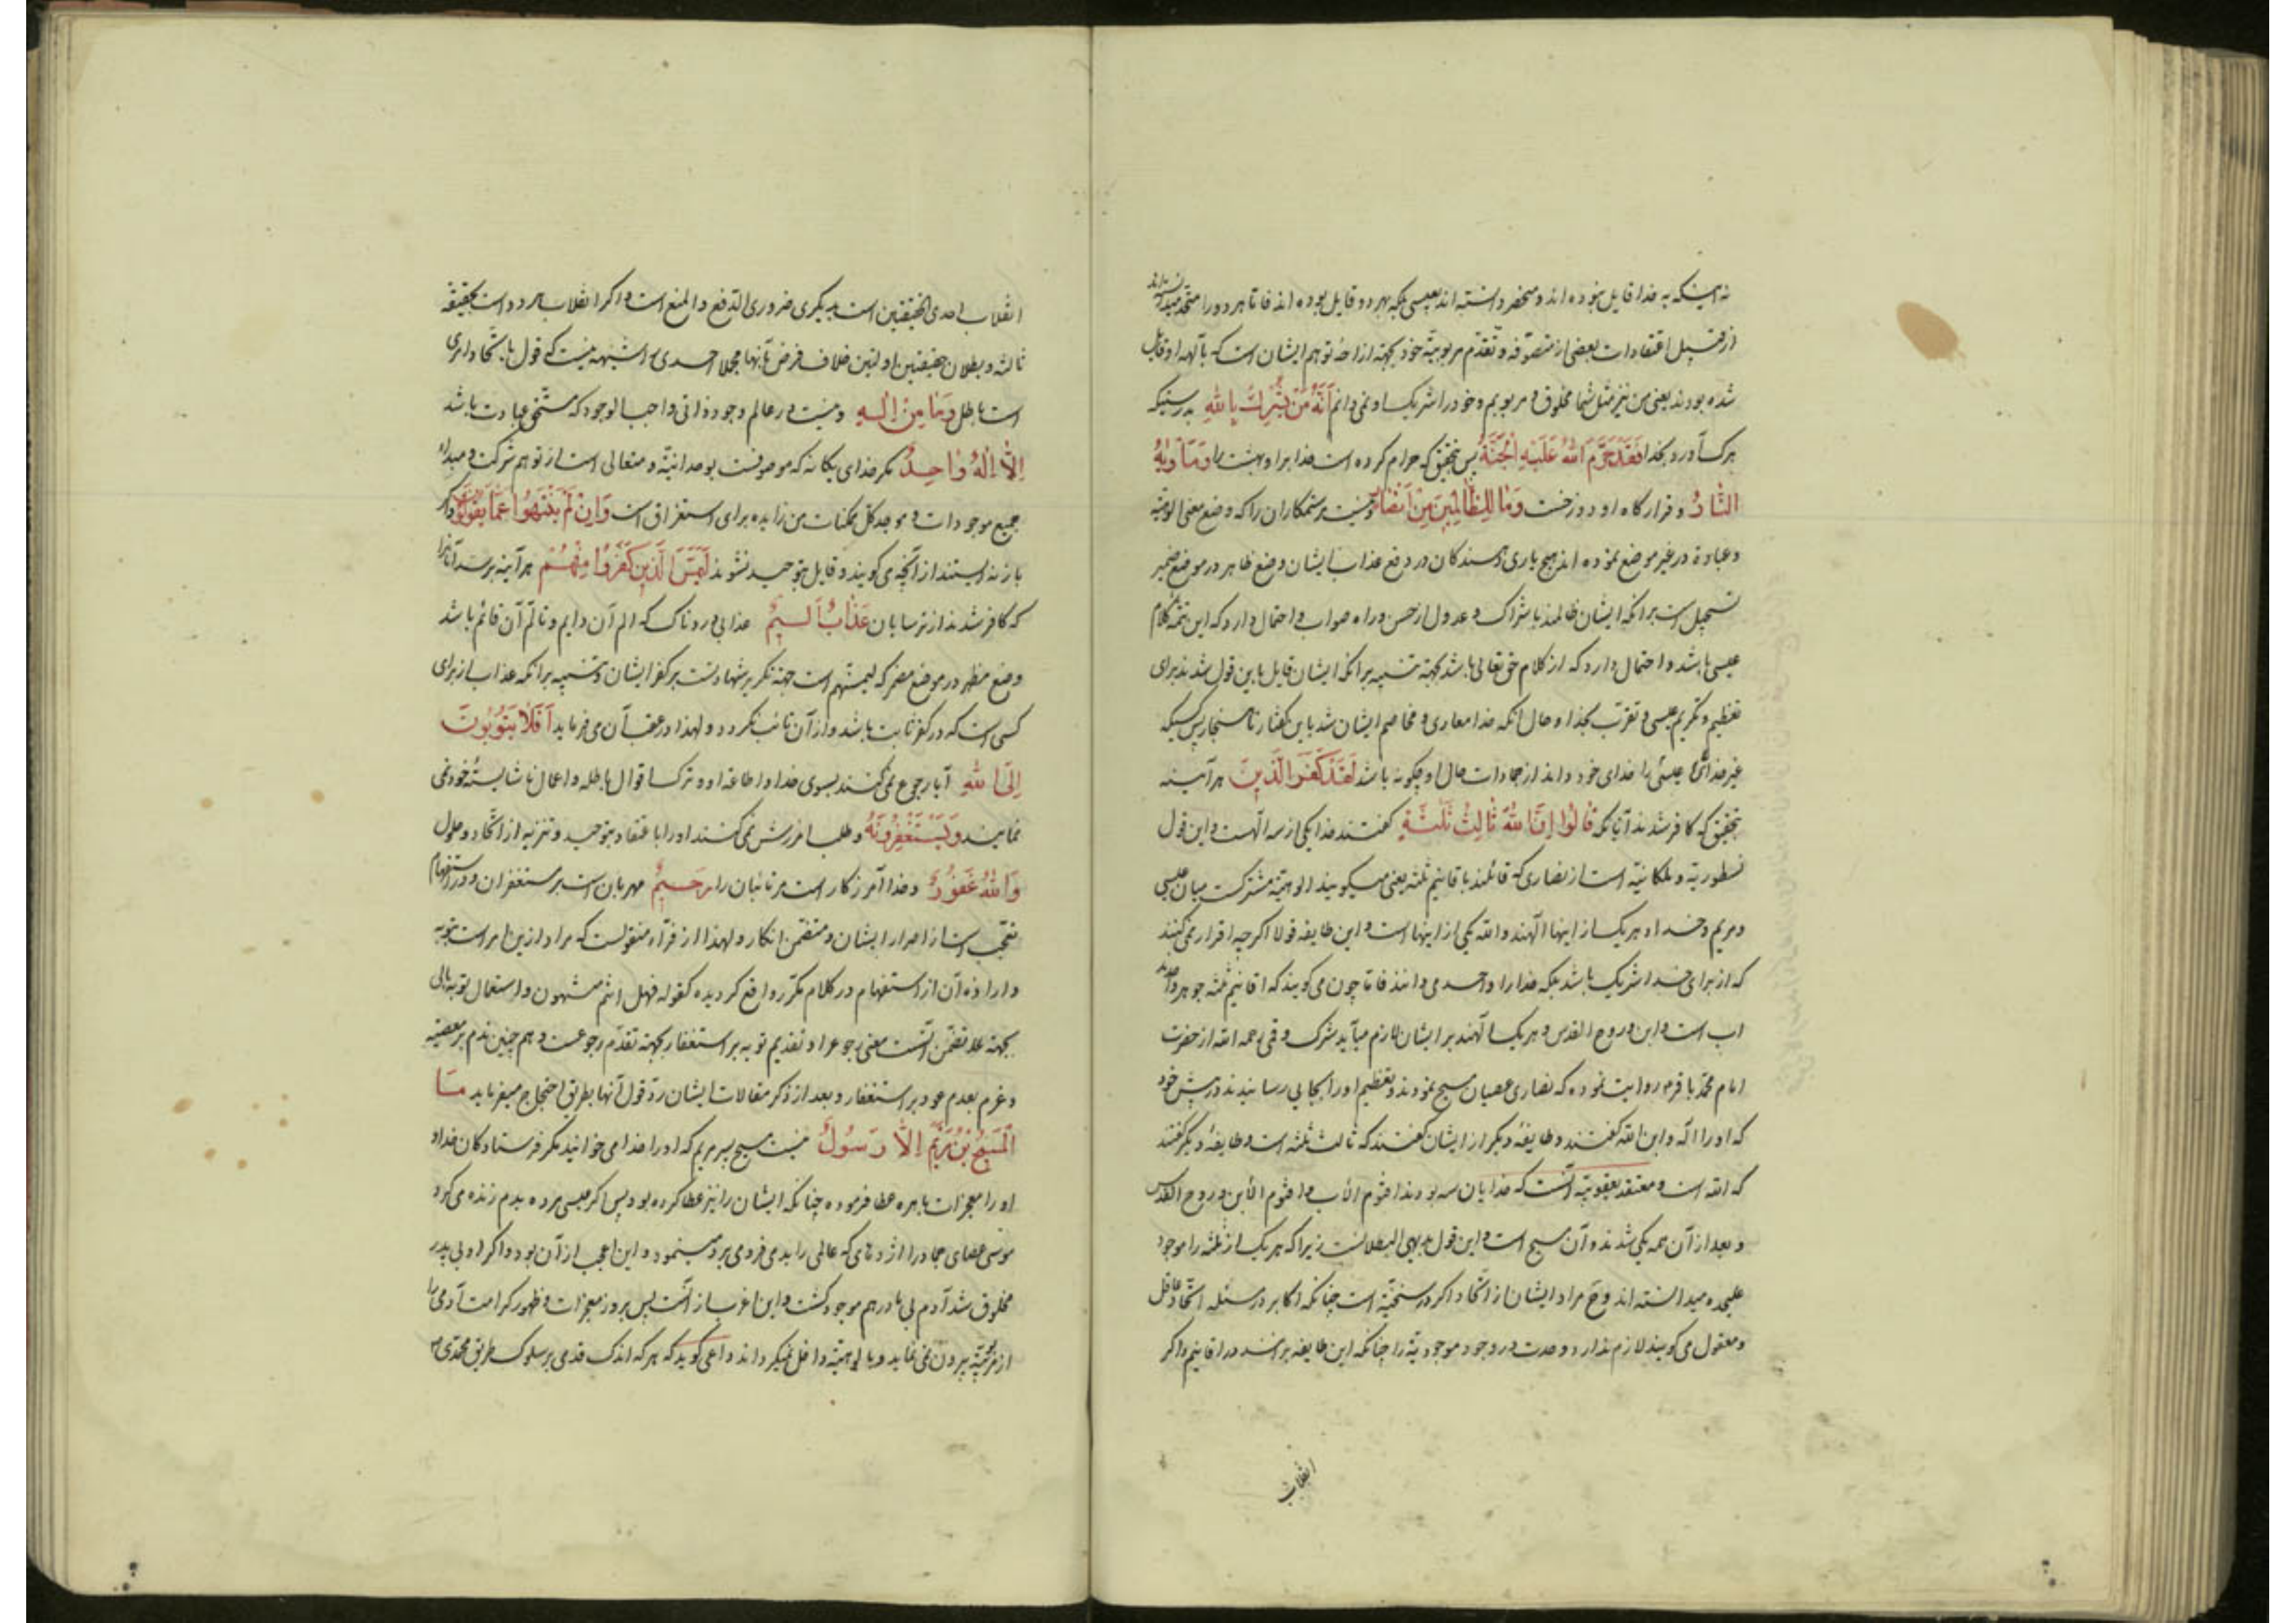 نه اینکه به خدا قایل نبوده اند و منحصر دانسته اند بعیسی بلکه بهر دو قایل بوده اند فاما هر دو را متحد میدانسته اند
از قبیل اعتقادات بعضی از متصوفه و تقدم مربوبیة خود بجهة ازاحهٔ توهم ایشان است که بآلهه او قایل
شده بودند یعنی من نیز مثل شما مخلوق و مربوبم و خود را شریک او نمی دانم اَنَّهُ مَنْ یُشْرِكْ بِاللهِ بدرستیکه
هر که شریک آورد بخدا فَقَدْ حَرَّمَ اللهُ عَلَیْهِ الْجَنَّةَ پس بتحقیق که حرام کرده است خدا بر او بهشت را وَمَأْوٰیهُ
النَّارُ و قرارگاه او دوزخست وَمَا لِلظَّالِمِینَ مِنْ اَنْصَارٍ و نیست مر ستمکاران را که وضع معنی الوهیة
و عبادة در غیر موضع نموده اند هیچ یاری دهندگان در دفع عذاب ایشان وضع ظاهر در موضع ضمیر
تسجیل است بر آنکه ایشان ظالمند باشراک و عدول از حسن و راه صواب و احتمال دارد که این تتمهٔ کلام
عیسی باشد و احتمال دارد که از کلام حق تعالی باشد بجهة تنبیه بر آنکه ایشان قایل باین قول شدند برای
تعظیم و تکریم عیسی و تقرّب بخدا و حال آنکه خدا معادی و مخاصم ایشان شد باین گفتار ناهنجار پس کسیکه
غیر خدای عیسی را خدای خود داند از جمادات حال او چگونه باشد لَقَدْ كَفَرَ الَّذِینَ هر آینه
بتحقیق که کافر شدند آنانکه قَالُوا اِنَّ اللهَ ثَالِثُ ثَلٰثَةٍ گفتند خدا یکی از سه الهست و این قول
نسطوریة و ملکانیة است از نصاری که قائلند باقانیم ثلثه یعنی میگویند الوهیة مشترکست میان عیسی
و مریم و خدا و هر یک از اینها الهند و الله یکی از اینها است و این طایفه قولا اگر چه اقرار نمی کنند
که از برای خدا شریک باشد بلکه خدا را واحد می دانند فاما چون می گویند که اقانیم ثلثه جوهر واحدند
اب است و ابن و روح القدس و هر یک الهند بر ایشان لازم میآید شرک و قمی رحمه الله از حضرت
امام محمد باقر روایت نموده که نصاری عصیان مسیح نمودند و تعظیم او را بجایی رسانیدند در پیش خود
که او را اله و ابن الله گفتند و طایفهٔ دیگر از ایشان گفتند که ثالث ثلثه است و طایفهٔ دیگر گفتند
که الله است و معتقد یعقوبیة آنست که خدایان سه بودند اقنوم الاب و اقنوم الابن و روح القدس
و بعد از آن همه یکی شدند و آن مسیح است و این قول بدیهی البطلانست زیرا که هر یک از ثلثه را موجود
علیحده میدانسته اند و مراد ایشان از اتحاد اگر در سنخیّة است چنانکه اکابر در مسئله اتحاد عاقل
و معقول می گویند لازم ندارد وحدت در وجود موجودیة را چنانکه این طایفه بر آنند در اقانیم و اگر
انقلاب
انقلاب احدی الحقیقتین است بدیگری ضروری الدفع و المنع است و اگر انقلاب هر دو است بحقیقة
ثالثه و بطلان حقیقتین اولتین خلاف فرض آنها بحلا احدی را شبهه نیست که قول باتحاد امری
است باطل وَمَا مِنْ اِلٰهٍ و نیست در عالم وجود ذاتی واجب الوجود که مستحق عبادت باشد
اِلَّا اِلٰهٌ وَاحِدٌ مگر خدای یگانه که موصوفست بوحدانیّة و متعالی است از توهم شرکت و مبداء
جمیع موجودات و موجد کل ممکنات من زایده برای استغراق است وَاِنْ لَمْ یَنْتَهُوا عَمَّا یَقُولُونَ و اگر
باز نه ایستند از آنچه می گویند و قایل بتوحید نشوند لَیَمَسَّنَّ الَّذِینَ كَفَرُوا مِنْهُمْ هر آینه برسد آنانرا
که کافر شدند از ترسایان عَذَابٌ اَلِیمٌ عذابی دردناک که الم آن دایم و تالّم آن قائم باشد
وضع مظهر در موضع مضمر که لیمسّنّهم است جهة تکریر شهادتست بر کفر ایشان و تنبیه بر آنکه عذاب از برای
کسی است که در کفر ثابت باشد و از آن تائب نگردد و لهذا در عقب آن می فرماید اَفَلَا یَتُوبُونَ
اِلَى اللهِ آیا رجوع نمی کنند بسوی خدا و اطاعة او و ترک اقوال باطله و اعمال ناشایستهٔ خود نمی
نمایند وَیَسْتَغْفِرُونَهُ و طلب آمرزش نمی کنند او را باعتقاد بتوحید و تنزیه از اتحاد و حلول
وَاللهُ غَفُورٌ و خدا آمرزگار است مر تائبان را رَحِیمٌ مهربان است بر مستغفران و در استفهام
تعجب است از اصرار ایشان و متضمن انکار و لهذا از فرّاء منقولست که مراد ازین امر است بتوبه
و اراده آن از استفهام در کلام مکرّر واقع گردیده کقوله فهل انتم منتهون و استعمال توبه بالی
بجهة علا تضمن آنست معنی رجوع را و تقدیم توبه بر استغفار بجهة تقدّم رجوعست و هم چنین ندم بر معصیة
و عزم بعدم عود بر استغفار و بعد از ذکر مقالات ایشان ردّ قول آنها بطریق احتجاج میفرماید مَا
الْمَسِیحُ ابْنُ مَرْیَمَ اِلَّا رَسُولٌ نیست مسیح پسر مریم که او را خدا می خوانید مگر فرستادگان خدا و
او را معجزات باهره عطا فرموده چنانکه ایشان را نیز عطا کرده بود پس اگر عیسی مرده بدم زنده می کرد
موسی عصای جماد را اژدهایی که عالمی را بدمی فرو می برد مینمود و این اعجب از آن بود و اگر او بی پدر
مخلوق شد آدم بی مادر هم موجود گشت و این اغرب از آنست پس بروز معجزات و ظهور کرامت آدمی را
از مربوبیّة بیرون نمی نماید و بالوهیّة داخل نمیگرداند داعی گوید که هر که اندک قدمی بر سلوک طریق محمدی ص